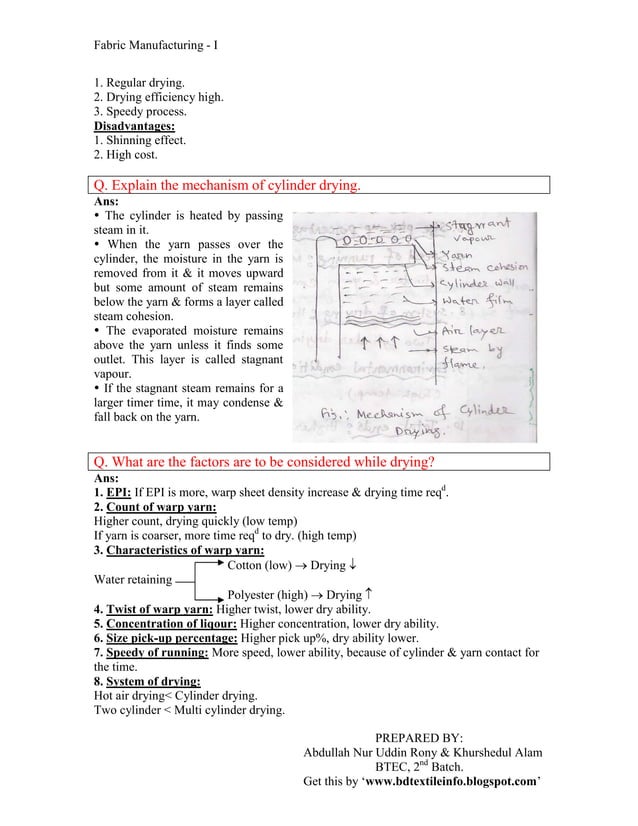 Fabric Manufacturing - I
1. Regular drying.
2. Drying efficiency high.
3. Speedy process.
Disadvantages:
1. Shinning effect.
2. High cost.
Q. Explain the mechanism of cylinder drying.
Ans:
• The cylinder is heated by passing
steam in it.
• When the yarn passes over the
cylinder, the moisture in the yarn is
removed from it & it moves upward
but some amount of steam remains
below the yarn & forms a layer called
steam cohesion.
• The evaporated moisture remains
above the yarn unless it finds some
outlet. This layer is called stagnant
vapour.
• If the stagnant steam remains for a
larger timer time, it may condense &
fall back on the yarn.
stagnant
vapour
Yarn
steam cohesion
cylinder wall
Water film
Air layer
steam by
flame.
Fig.: Mechanism of Cylinder
Drying.
Q. What are the factors are to be considered while drying?
Ans:
1. EPI: If EPI is more, warp sheet density increase & drying time reqd.
2. Count of warp yarn:
Higher count, drying quickly (low temp)
If yarn is coarser, more time reqd to dry. (high temp)
3. Characteristics of warp yarn:
Cotton (low) → Drying ↓
Water retaining
Polyester (high) → Drying ↑
4. Twist of warp yarn: Higher twist, lower dry ability.
5. Concentration of liqour: Higher concentration, lower dry ability.
6. Size pick-up percentage: Higher pick up%, dry ability lower.
7. Speedy of running: More speed, lower ability, because of cylinder & yarn contact for
the time.
8. System of drying:
Hot air drying< Cylinder drying.
Two cylinder < Multi cylinder drying.
PREPARED BY:
Abdullah Nur Uddin Rony & Khurshedul Alam
BTEC, 2nd Batch.
Get this by ‘www.bdtextileinfo.blogspot.com’